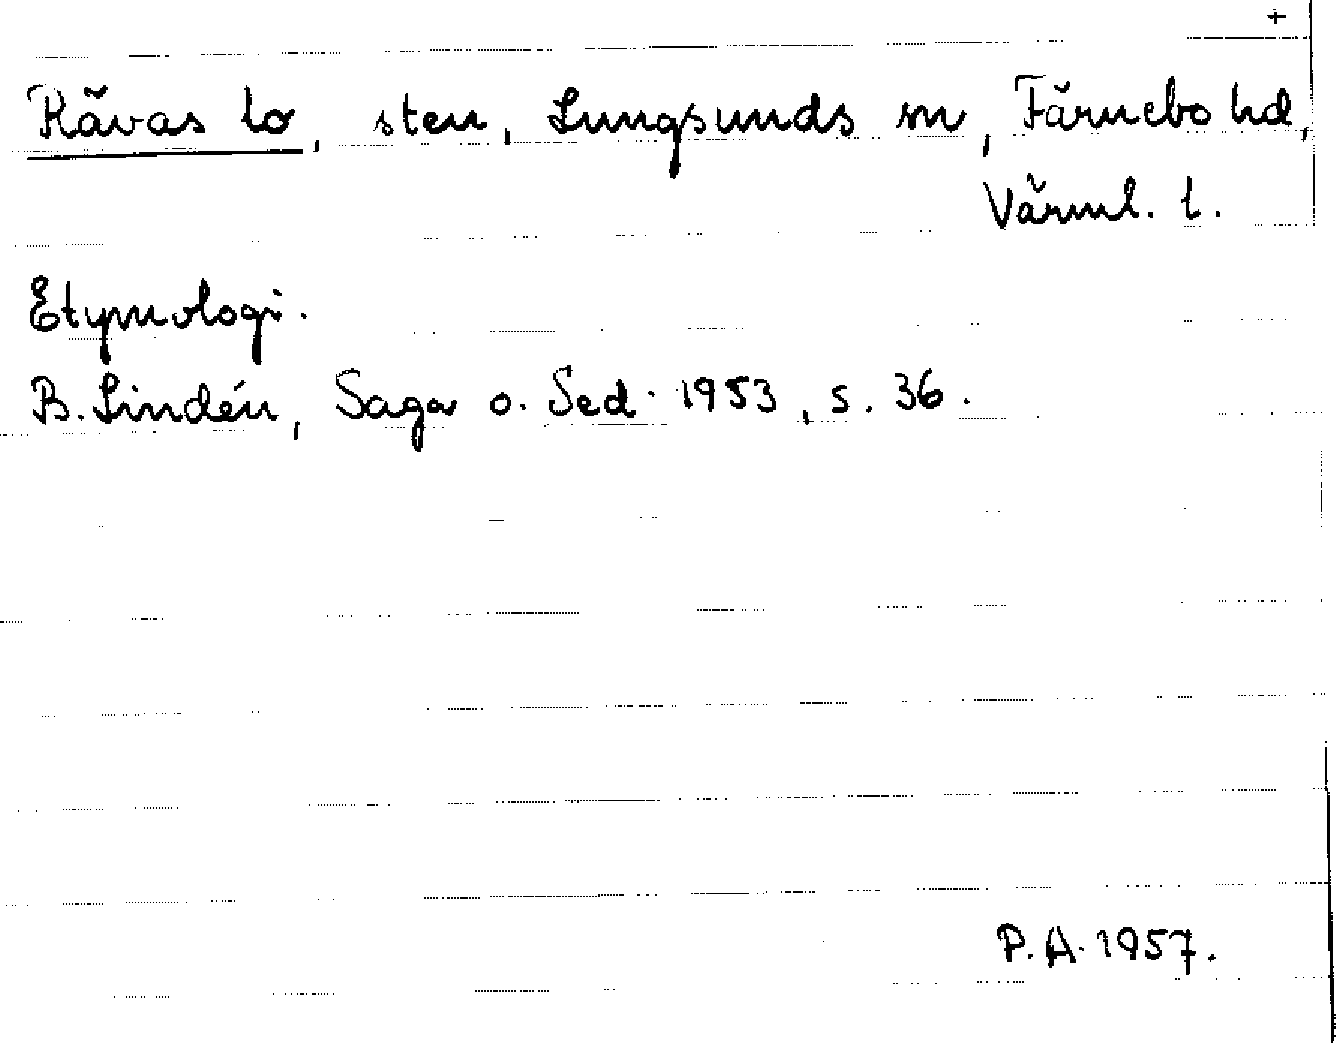 +
Rävas lo, sten, Lungsunds sn, Färnebo hd,
Värml. l.
Etymologi.
B. Lindén, Saga o. Sed. 1953, s. 36.
P. A. 1957.